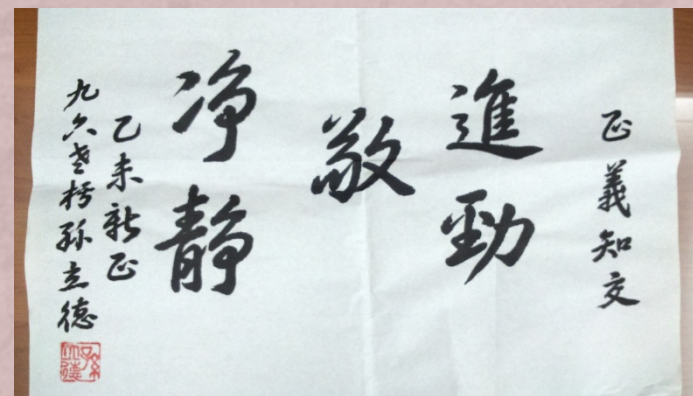 正義知交
進勁
敬
净静
乙未新正
九六老朽孫立德